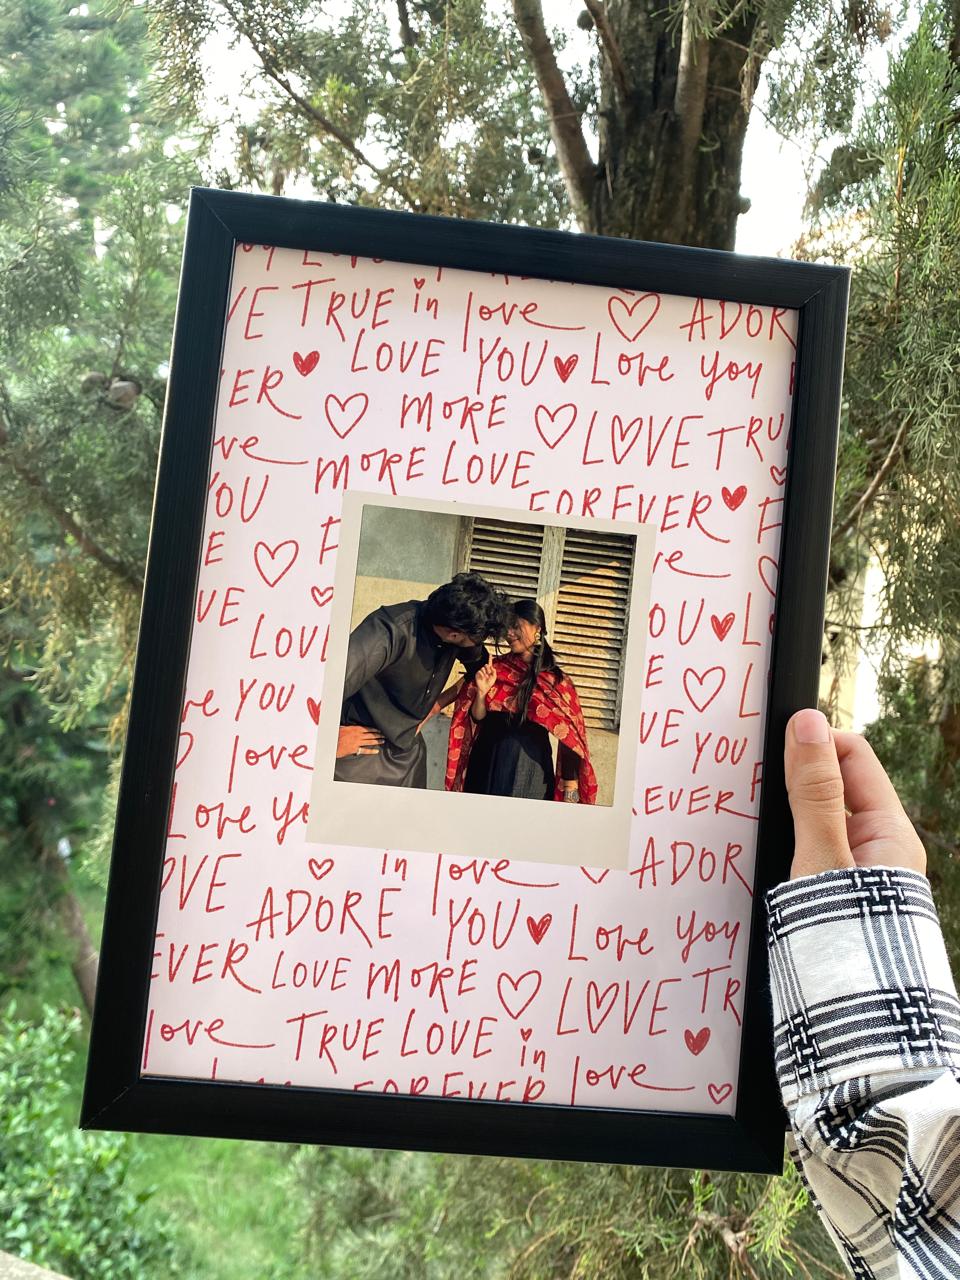 VE TRUE in love ADOR
LOVE YOU Love you
ER MORE LOVE TRU
ve MORE LOVE
YOU FOREVER F
E F ve
VE LOVE YOU L
ve YOU E L
love VE YOU
Love yo EVER F
OVE in love ADOR
ADORE YOU Love you
EVER LOVE MORE LOVE TR
love TRUE LOVE in
FOREVER love